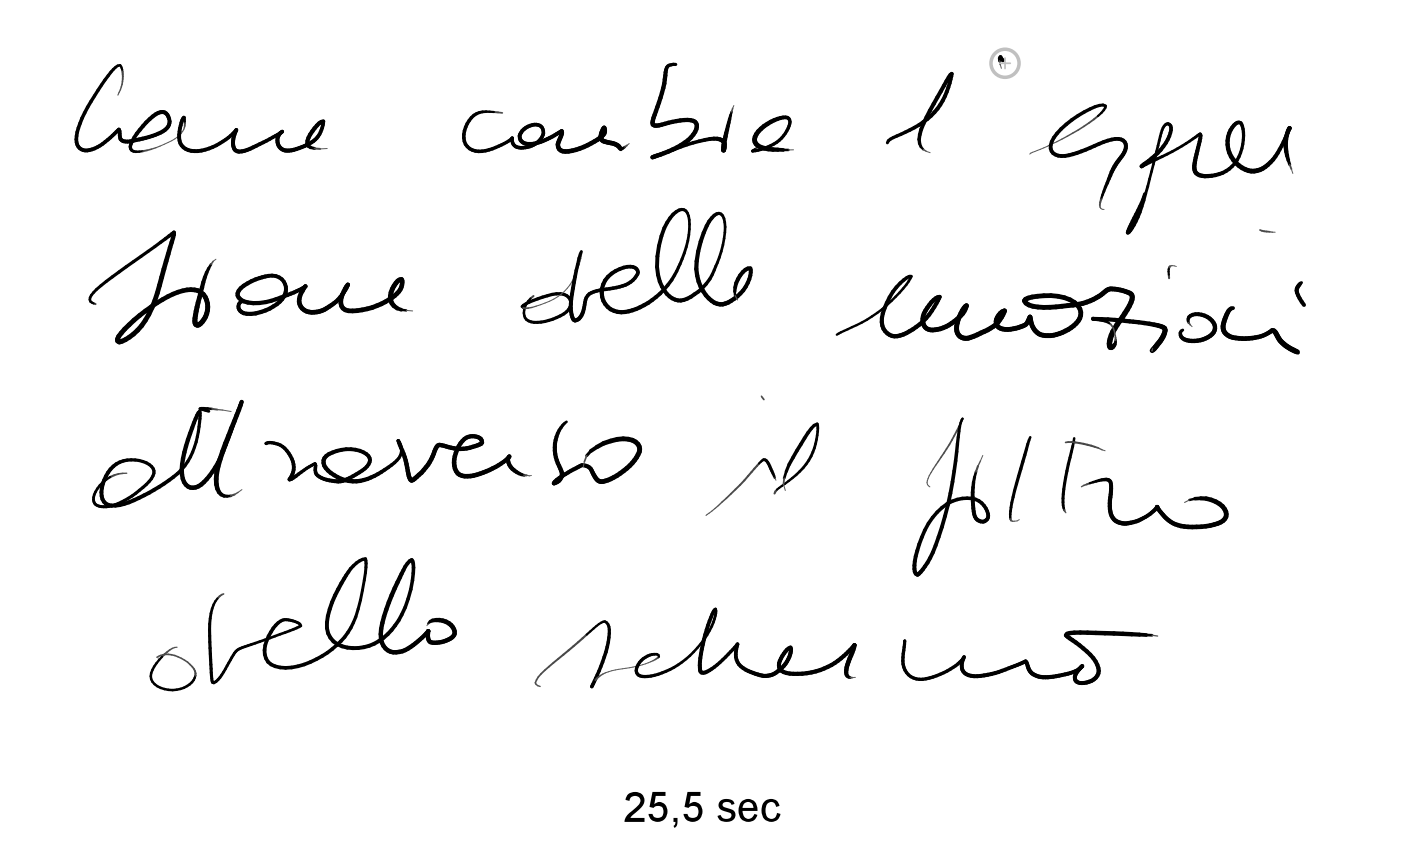 Come cambia l'espres
sione delle emozioni
attraverso il filtro
dello schermo
25,5 sec